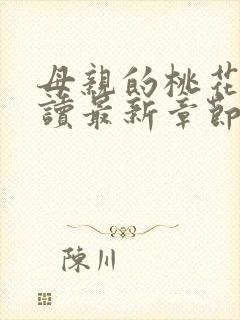 母親的桃花
讀最新章節
陳川